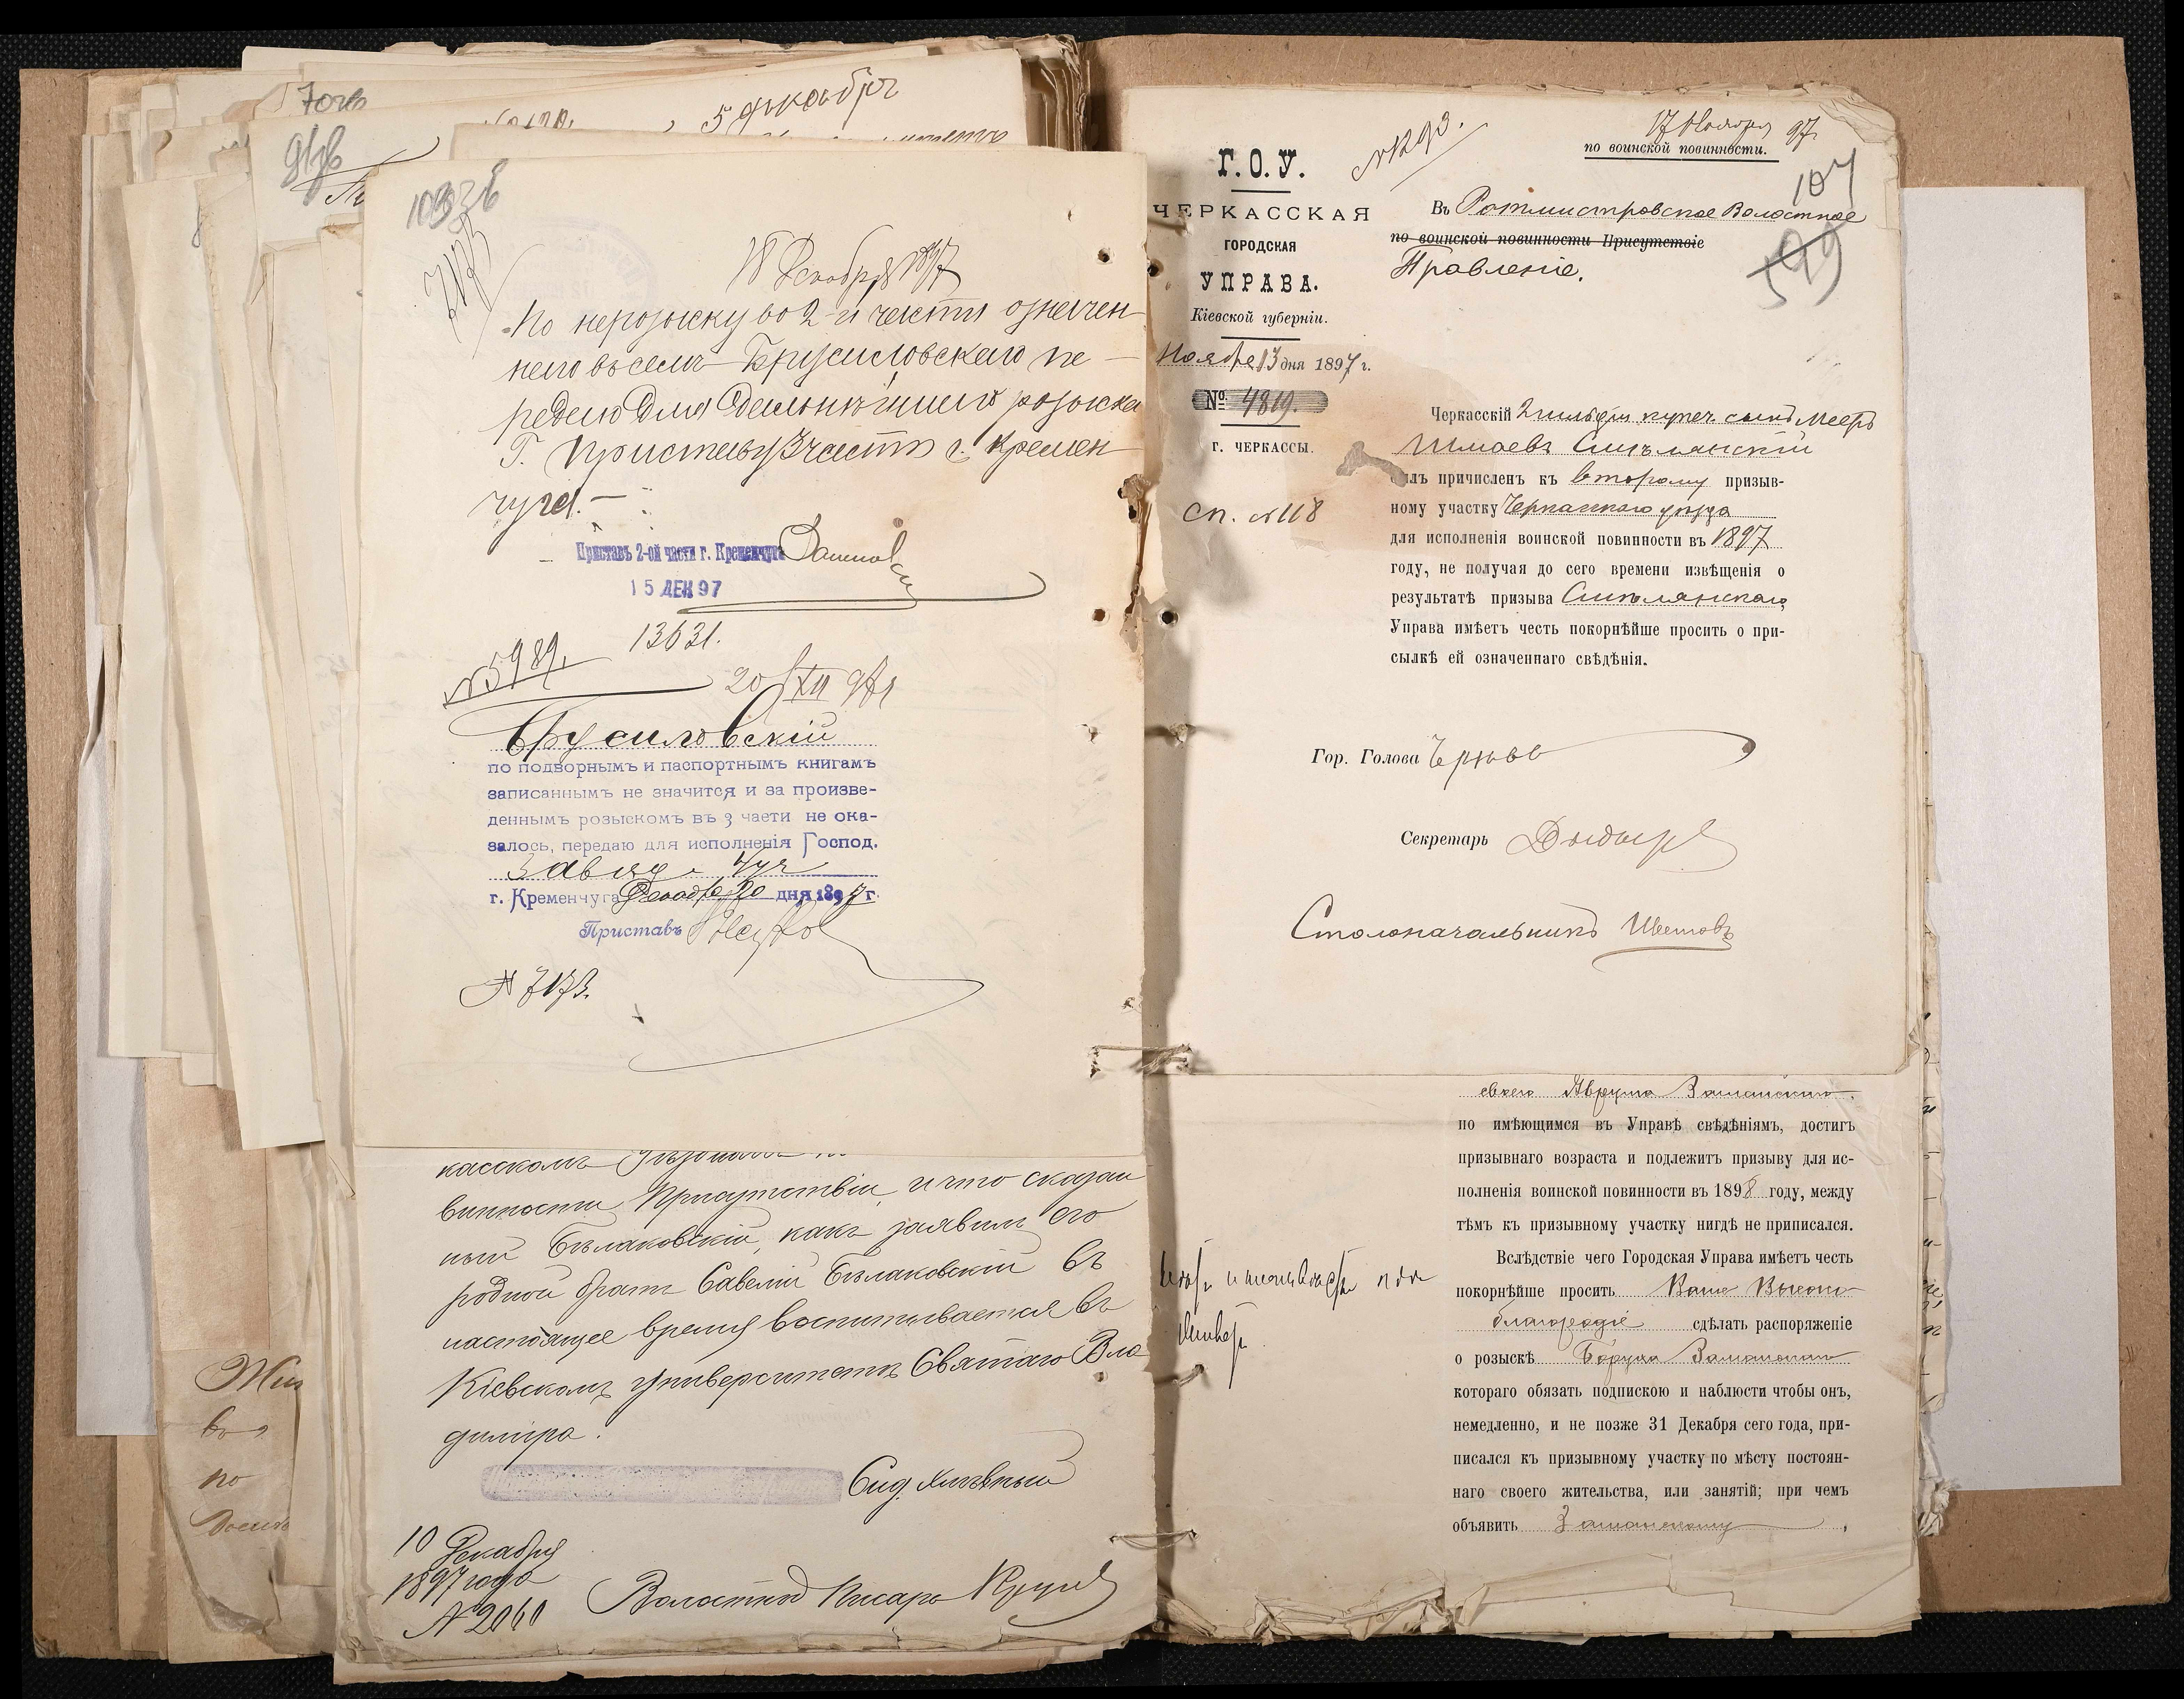 5 декабря
103об
18 Декабря 1897
По нерозыску во 2-й части означен-
наго въ семъ Брусиловскаго пе-
редаю для дальнѣйшаго розыска
Г. Приставу 3 части г. Кремен-
чуга.
Приставъ 2-ой части г. Кременчуга
15 ДЕК 97
13631.
№ 5989.
20/XII 97
Брусиловскій
по подворнымъ и паспортнымъ книгамъ
записаннымъ не значится и за произве-
деннымъ розыскомъ въ 3 части не ока-
залось, передаю для исполненія Господ.
г. Кременчуга Декабря 20 дня 1897 г.
Приставъ
№ 7173.
винности Присутствіи, и что сказан
ный Бѣлаковскій, какъ заявилъ его
родной братъ Савелій Бѣлаковскій въ
настоящее время воспитывается въ
Кіевскомъ университетѣ Святаго Вла
диміра.
10 Декабря
1897 года
№ 2060
Волостной Писарь
17 Ноября 97
по воинской повинности.
№ 1293.
107
599
Г. О. У.
ЧЕРКАССКАЯ
ГОРОДСКАЯ
УПРАВА.
Кіевской губерніи.
Ноября 13 дня 1897 г.
№ 4819.
г. ЧЕРКАССЫ.
сп. № 118
Въ Ротмистровское Волостное
по воинской повинности Присутствіе
Правленіе.
Черкасскій 2 гильдіи купеч. сынъ Мееръ
Шмаевъ Смѣлянскій
былъ причисленъ къ второму призыв-
ному участку Черкасскаго уѣзда
для исполненія воинской повинности въ 1897
году, не получая до сего времени извѣщенія о
результатѣ призыва Смѣлянскаго,
Управа имѣетъ честь покорнѣйше просить о при-
сылкѣ ей означеннаго свѣдѣнія.
Гор. Голова
Секретарь
Столоначальникъ
своего Аврума Заманскаго,
по имѣющимся въ Управѣ свѣдѣніямъ, достигъ
призывнаго возраста и подлежитъ призыву для ис-
полненія воинской повинности въ 1898 году, между
тѣмъ къ призывному участку нигдѣ не приписался.
Вслѣдствіе чего Городская Управа имѣетъ честь
покорнѣйше просить Ваше Высоко-
благородіе сдѣлать распоряженіе
о розыскѣ Боруха Заманскаго
котораго обязать подпискою и наблюсти чтобы онъ,
немедленно, и не позже 31 Декабря сего года, при-
писался къ призывному участку по мѣсту постоян-
наго своего жительства, или занятій; при чемъ
объявить Заманскому,